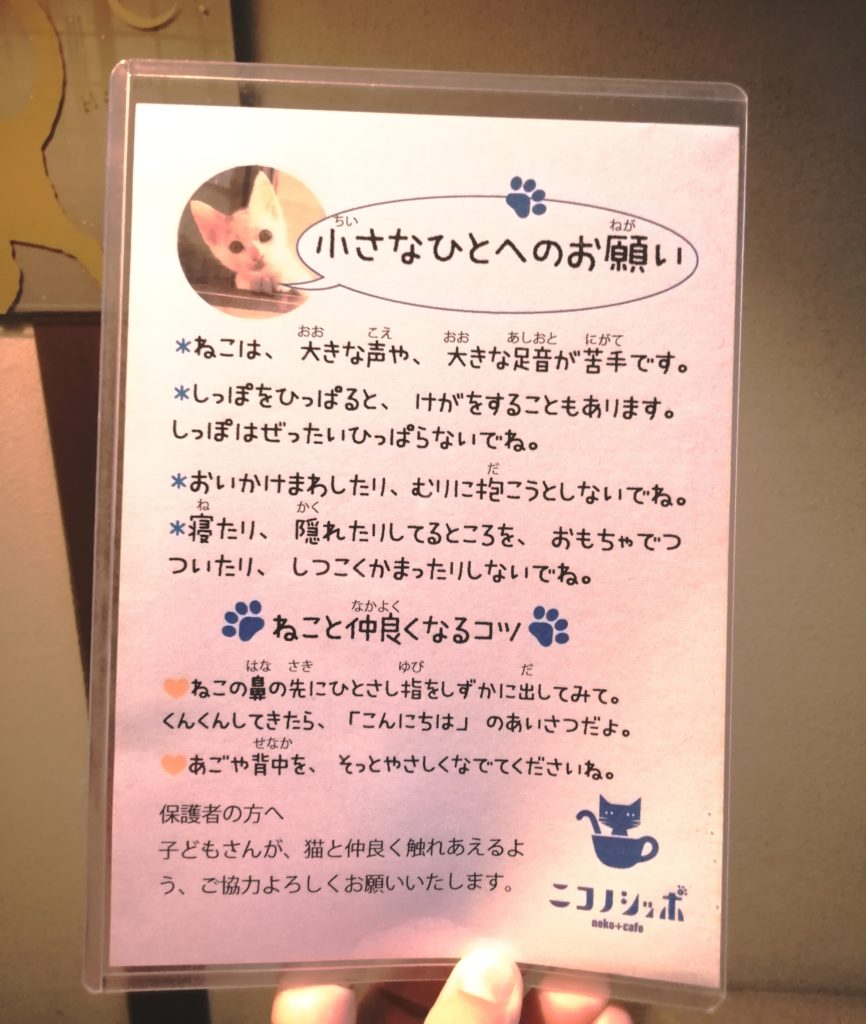 小さなひとへのお願い
ちい ねが
*ねこは、 大きな声や、 大きな足音が苦手です。
おお こえ おお あしおと にがて
*しっぽをひっぱると、 けがをすることもあります。
しっぽはぜったいひっぱらないでね。
*おいかけまわしたり、むりに抱こうとしないでね。
だ
*寝たり、 隠れたりしてるところを、 おもちゃでつ
ね かく
ついたり、 しつこくかまったりしないでね。
ねこと仲良くなるコツ
なかよく
ねこの鼻の先にひとさし指をしずかに出してみて。
はな さき ゆび だ
くんくんしてきたら、「こんにちは」 のあいさつだよ。
あごや背中を、 そっとやさしくなでてくださいね。
せなか
保護者の方へ
子どもさんが、猫と仲良く触れあえるよ
う、ご協力よろしくお願いいたします。
ニコノシッポ
neko+cafe